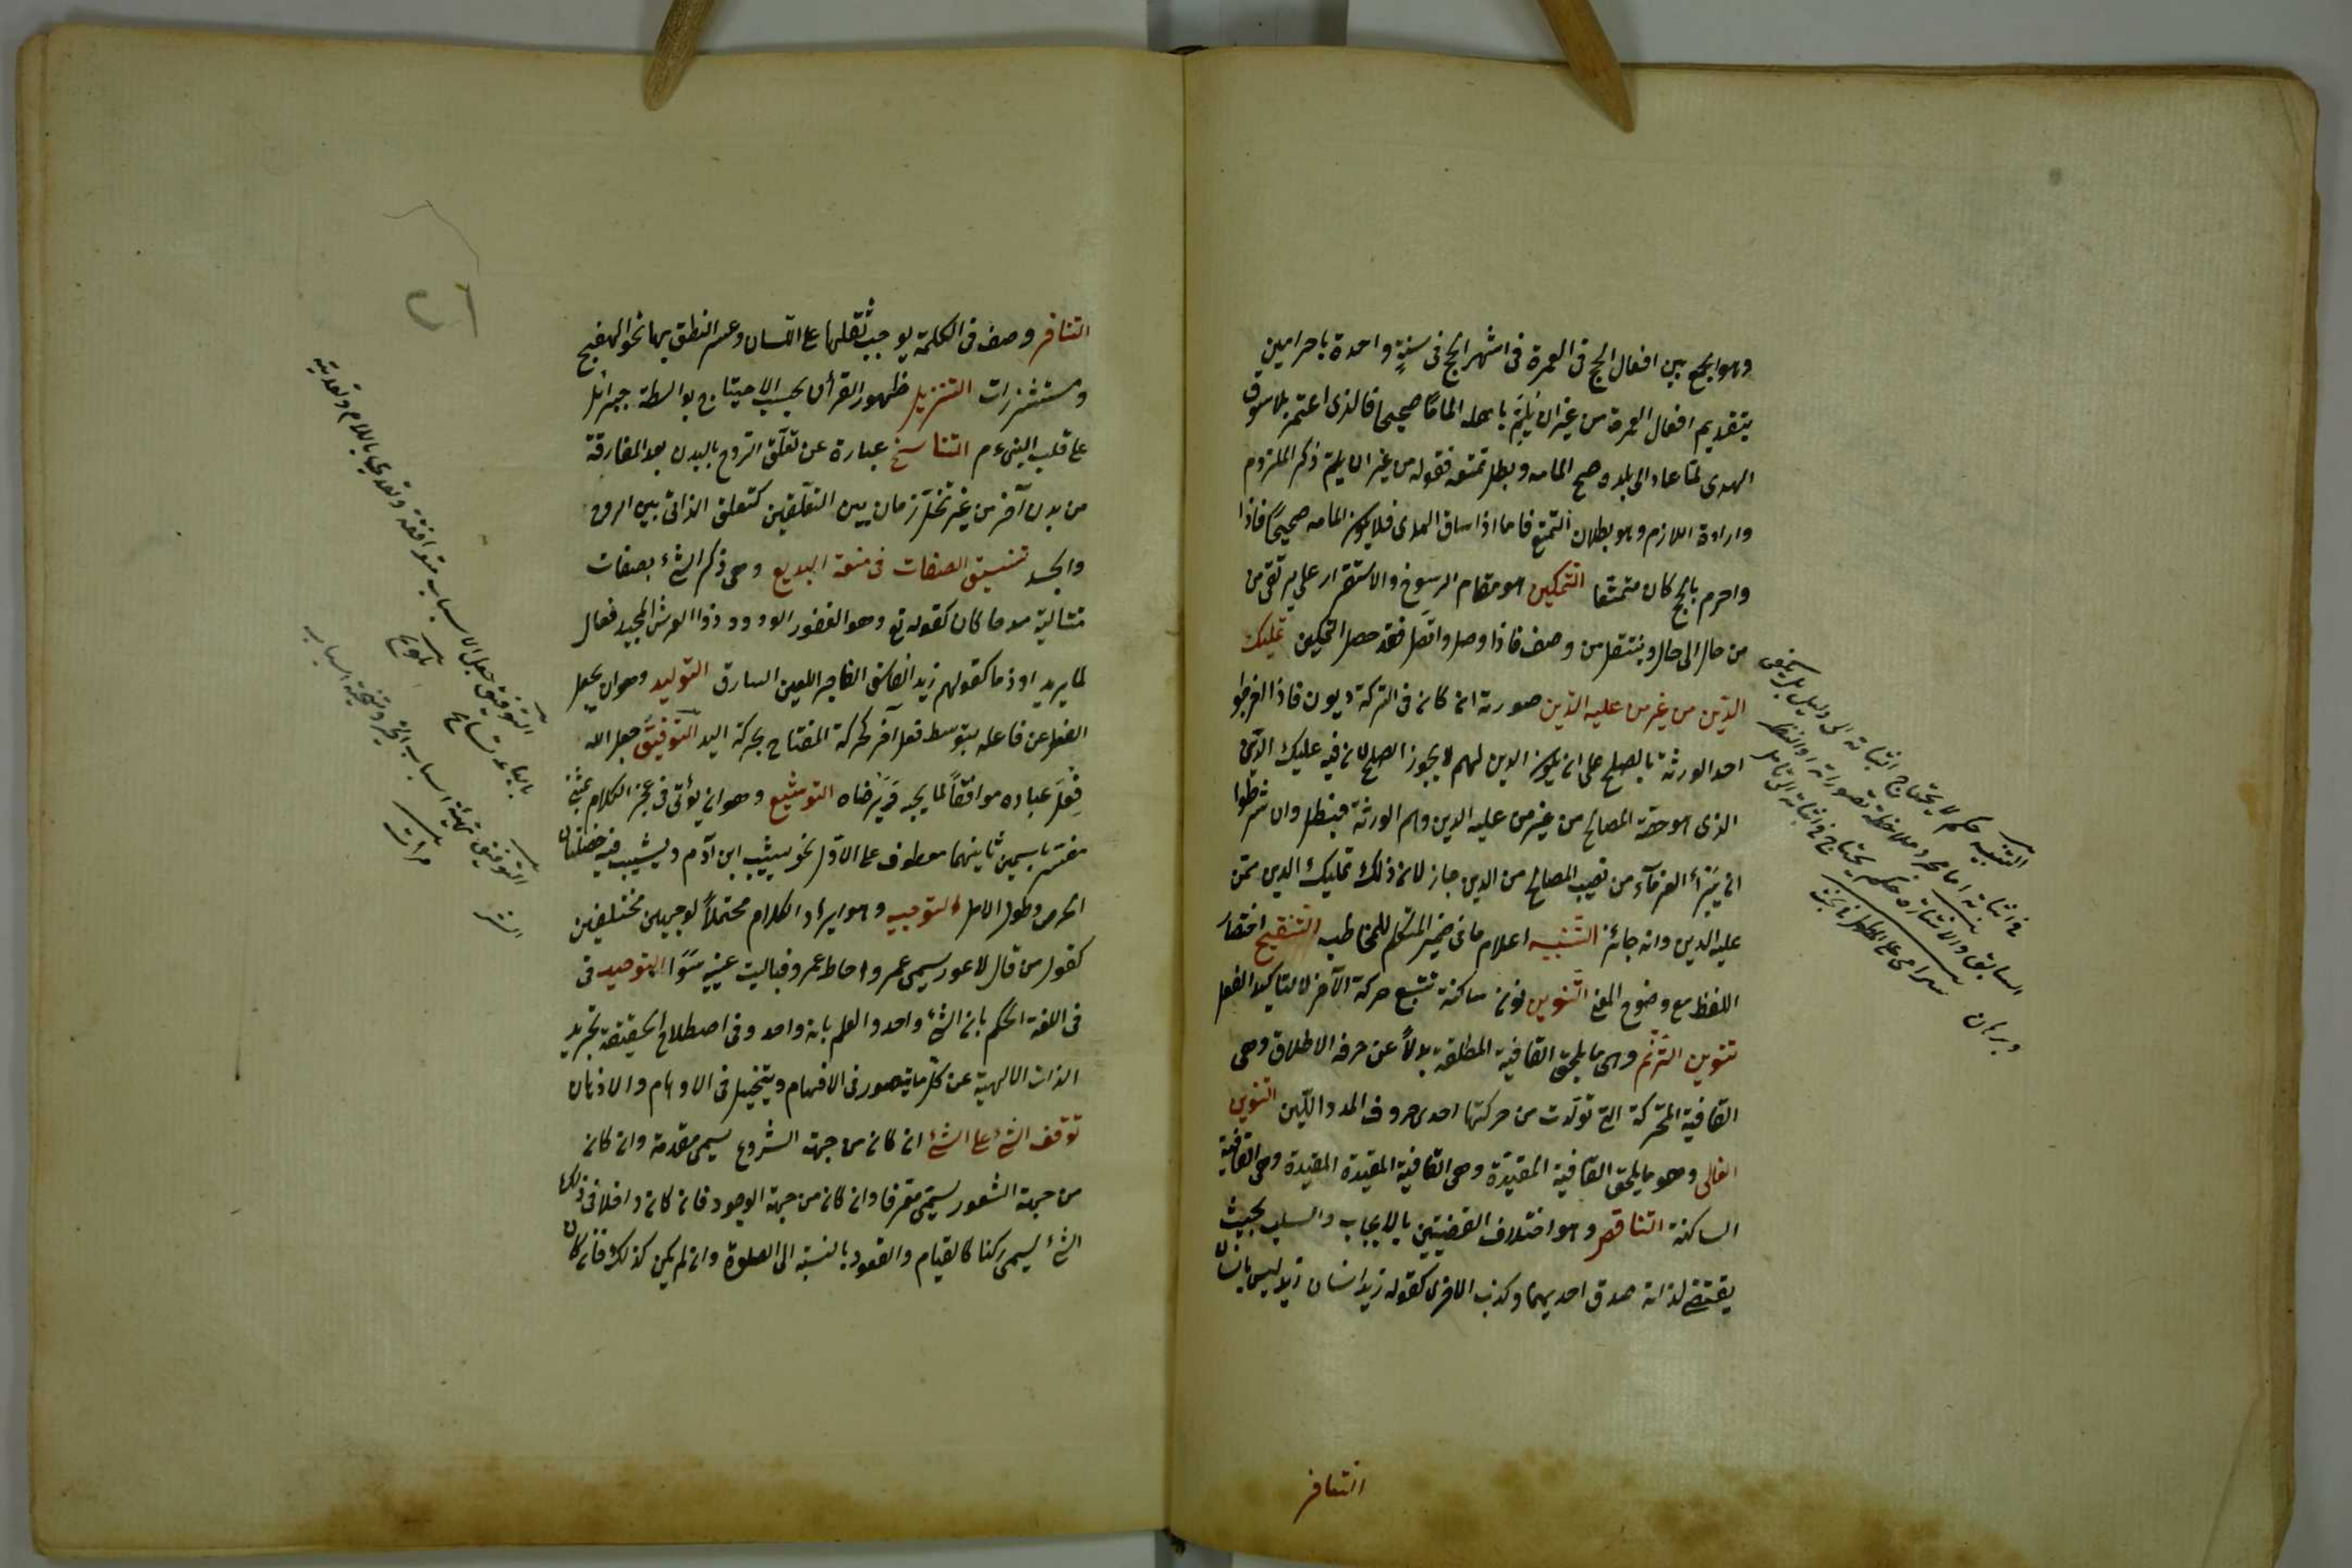 وهو الجمع بين افعال الحج فى العمرة فى اشهر الحج فى سنةٍ واحدة باحرامين
بتقديم افعال العمرة من غير ان يُلِمَّ باهله المامًا صحيحا فالذى اعتمر بلا سوق
الهدى لمّا عاد الى بلده صح المامه وبطل تمتعه فقوله من غير ان يلمّ ذكر الملزوم
وارادة اللازم وهو بطلان التمتع فاما اذا ساق الهدى فلا يكون المامه صحيحًا فاذا
واحرم بالحج كان متمتعا التمكين هو مقام الرسوخ والاستقرار على يرتقى من
من حال الى حال وينتقل من وصف فاذا وصل واتصل فقد حصل التمكين تمليك
الدّين من غير من عليه الدّين صورته ان كان فى التركة ديون فاذا اخرجوا
احد الورثة بالصلح على ان يكون الدين لهم لا يجوز الصلح لان فيه تمليك الدّين
الذى هو حصّة المصالح من غير من عليه الدين وهم الورثة فبطل وان شرطوا
ان يبرَأ الغرمآء من نصيب المصالح من الدين جاز لان ذلك تمليك الدين ممّن
عليه الدين وانه جائز التنبيه اعلام ما فى ضمير المتكلم للمخاطب التنقيح اختصار
اللفظ مع وضوح المعنى التنوين نون ساكنة تتبع حركة الآخر لا لتاكيد الفعل
تنوين الترنم وهى ما يلحق القافية المطلقة بدلًا عن حرف الاطلاق وهى
القافية المتحركة التى تولدت من حركتها احدى حروف المد والليّن التنوين
الغالى وهو ما يلحق القافية المقيّدة وهى القافية المقيدة المقيدة وهى القافية
الساكنة التناقض وهو اختلاف القضيتين بالايجاب والسلب بحيث
يقتضى لذاته صدق احديهما وكذب الاخرى كقوله زيد انسان زيد ليس بانسان
التنافر
التنبيه حكم لا يحتاج اثباته الى دليل بل يكفى
فى اثباته اما مجرد ملاحظة تصوراته او النظر
السابق والاشارة حكم يحتاج فى اثباته الى تامل
وبرهان
التنافر وصف فى الكلمة يوجب ثقلها على اللسان وعسر النطق بها نحو الهعخع
ومستشزرات التنزيل ظهور القرأن بحسب الاحتياج بواسطة جبرائل
على قلب النبىء م التناسخ عبارة عن تعلّق الرّوح بالبدن بعد المفارقة
من بدن آخر من غير تخلّل زمان بين التعلّقين كتعلق الذاتى بين الروح
والجسد تنسيق الصفات فى صنعة البديع وهى ذكر الشئ بصفات
متتالية مدحا كان كقوله تع وهو الغفور الودود ذوا العرش المجيد فعال
لما يريد او ذما كقولهم زيد الفاسق الفاجر اللعين السارق التوليد وهو ان يحصل
الفعل عن فاعله بتوسط فعل آخر كحركة المفتاح بحركة اليد التوفيق جعل الله
فِعلَ عباده موافقًا لما يحبه ويَرْضاه التوشيع وهو ان يؤتى فى عجز الكلام بمثنى
مفسّر باسمين ثانيهما معطوف على الاول نحو يشيب ابن آدم ويشيب فيه خصلتان
الحرص وطول الامل التوجيه وهو ايراد الكلام محتملًا لوجهين مختلفين
كقول من قال لاعور سمى عمروا خاط عمرو قباليت عينيه سَوَا التوحيد فى
فى اللغة الحكم بان الشئ واحد والعلم بانه واحد وفى اصطلاح الحقيقة تجريد
الذات الالهية عن كلّ ما يتصور فى الافهام ويتخيل فى الاوهام والاذهان
توقف الشئ على الشئ ان كان من جهة الشروع يسمى مقدمة وان كان
من جهة الشعور يسمّى معرفا وان كان من جهة الوجود فان كان داخلا فى ذلك
الشئ يسمى ركنا كالقيام والقعود بالنسبة الى الصلوة وان لم يكن كذلك فان كان
التوفيق جعل الاسباب متوافقة وتعدى باللام وتعديته
بالباء تسامح
تلويح